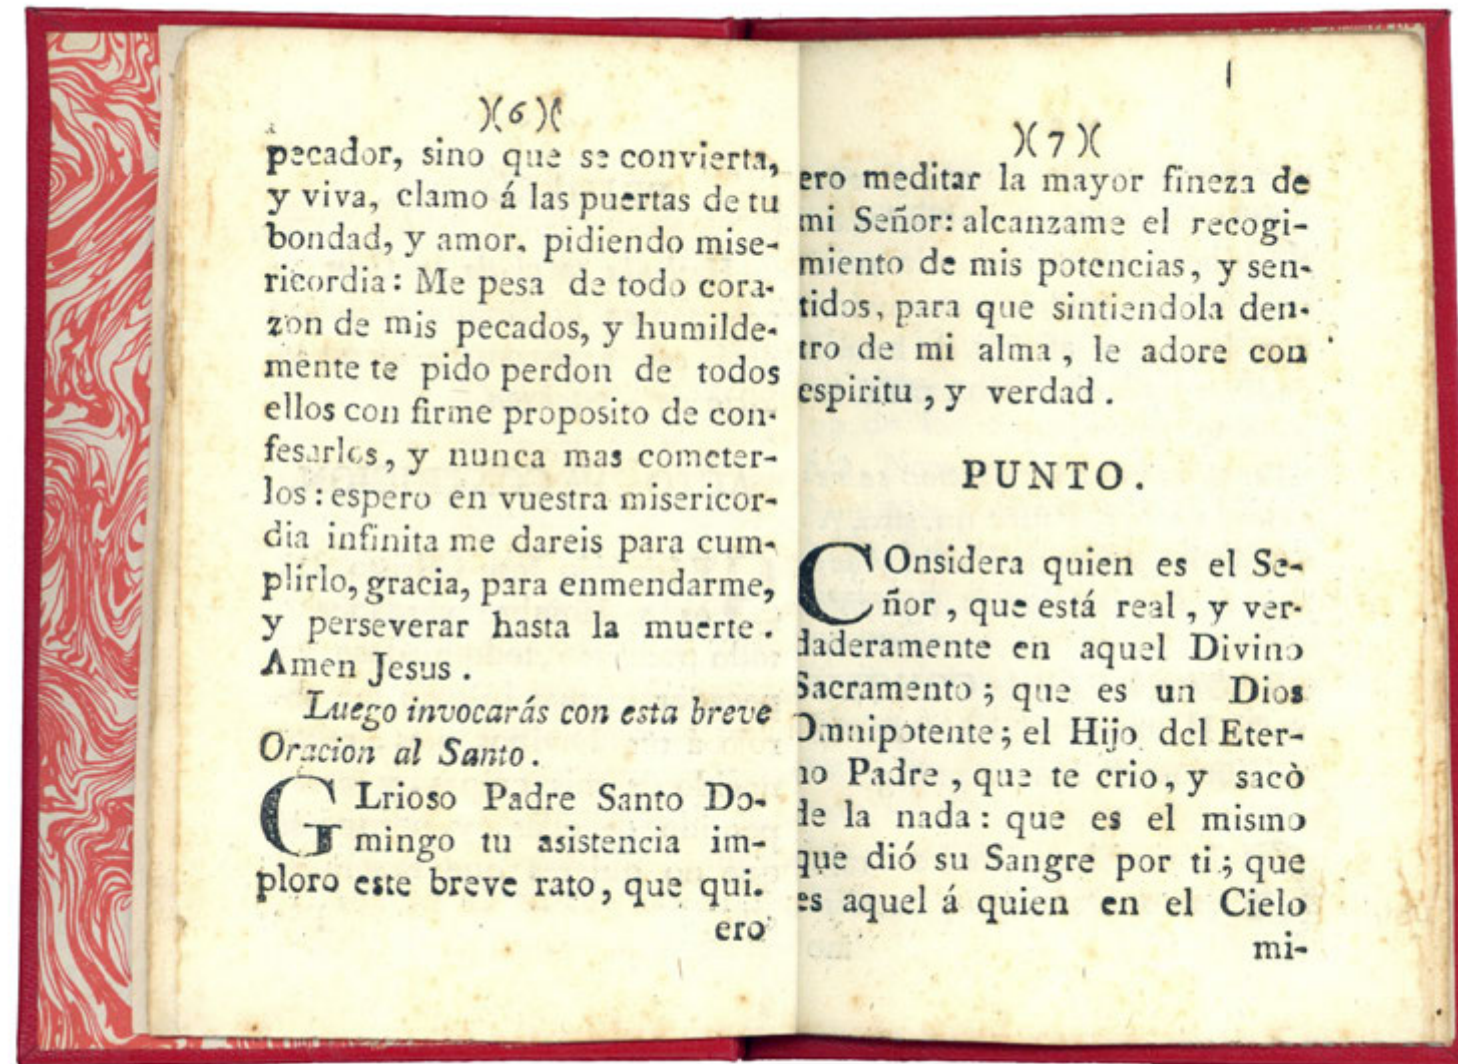 )(6)(
pecador, sino que se convierta,
y viva, clamo á las puertas de tu
bondad, y amor. pidiendo mise-
ricordia: Me pesa de todo cora-
zon de mis pecados, y humilde-
mente te pido perdon de todos
ellos con firme proposito de con-
fesarlos, y nunca mas cometer-
los: espero en vuestra misericor-
dia infinita me dareis para cum-
plirlo, gracia, para enmendarme,
y perseverar hasta la muerte.
Amen Jesus.
Luego invocarás con esta breve
Oracion al Santo.
GLrioso Padre Santo Do-
mingo tu asistencia im-
ploro este breve rato, que qui.
ero
)(7)(
ero meditar la mayor fineza de
mi Señor: alcanzame el recogi-
miento de mis potencias, y sen-
tidos, para que sintiendola den-
tro de mi alma, le adore con
espiritu, y verdad.
PUNTO.
COnsidera quien es el Se-
ñor, que está real, y ver-
daderamente en aquel Divino
Sacramento; que es un Dios
Omnipotente; el Hijo del Eter-
no Padre, que te crio, y sacò
de la nada: que es el mismo
que dió su Sangre por ti; que
es aquel á quien en el Cielo
mi-